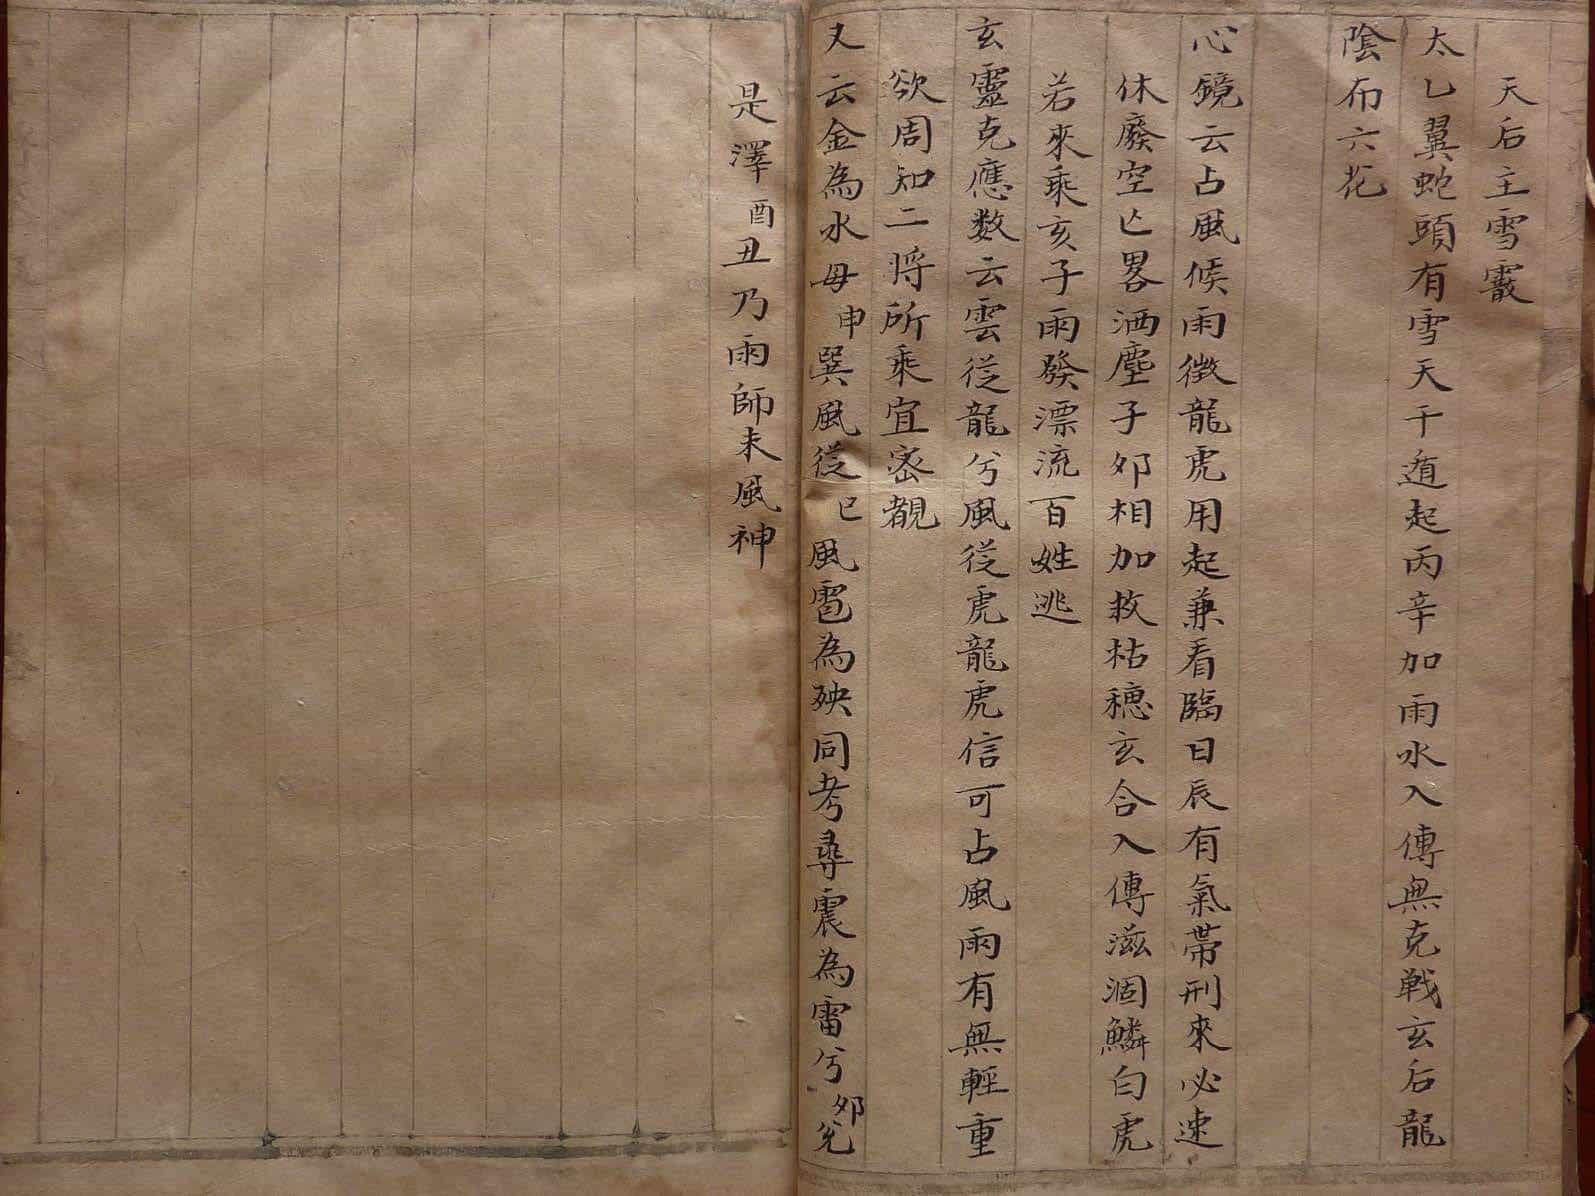 天后主雪霰
太乙翼蛇頭有雪天干遁起丙辛加雨水入傳無克戦玄后龍
陰布六花
心鏡云占風候雨徴龍虎用起兼看臨日辰有氣帯刑來必速
休廢空亡畧洒塵子夘相加救枯穗玄合入傳滋涸鱗白虎
若來乘亥子雨發漂流百姓逃
玄靈克應数云雲從龍兮風從虎龍虎信可占風雨有無輕重
欲周知二将所乘宜密覩
又云金為水母申巽風從巳風雹為殃同考尋震為雷兮夘兊
是澤酉丑乃雨師未風神